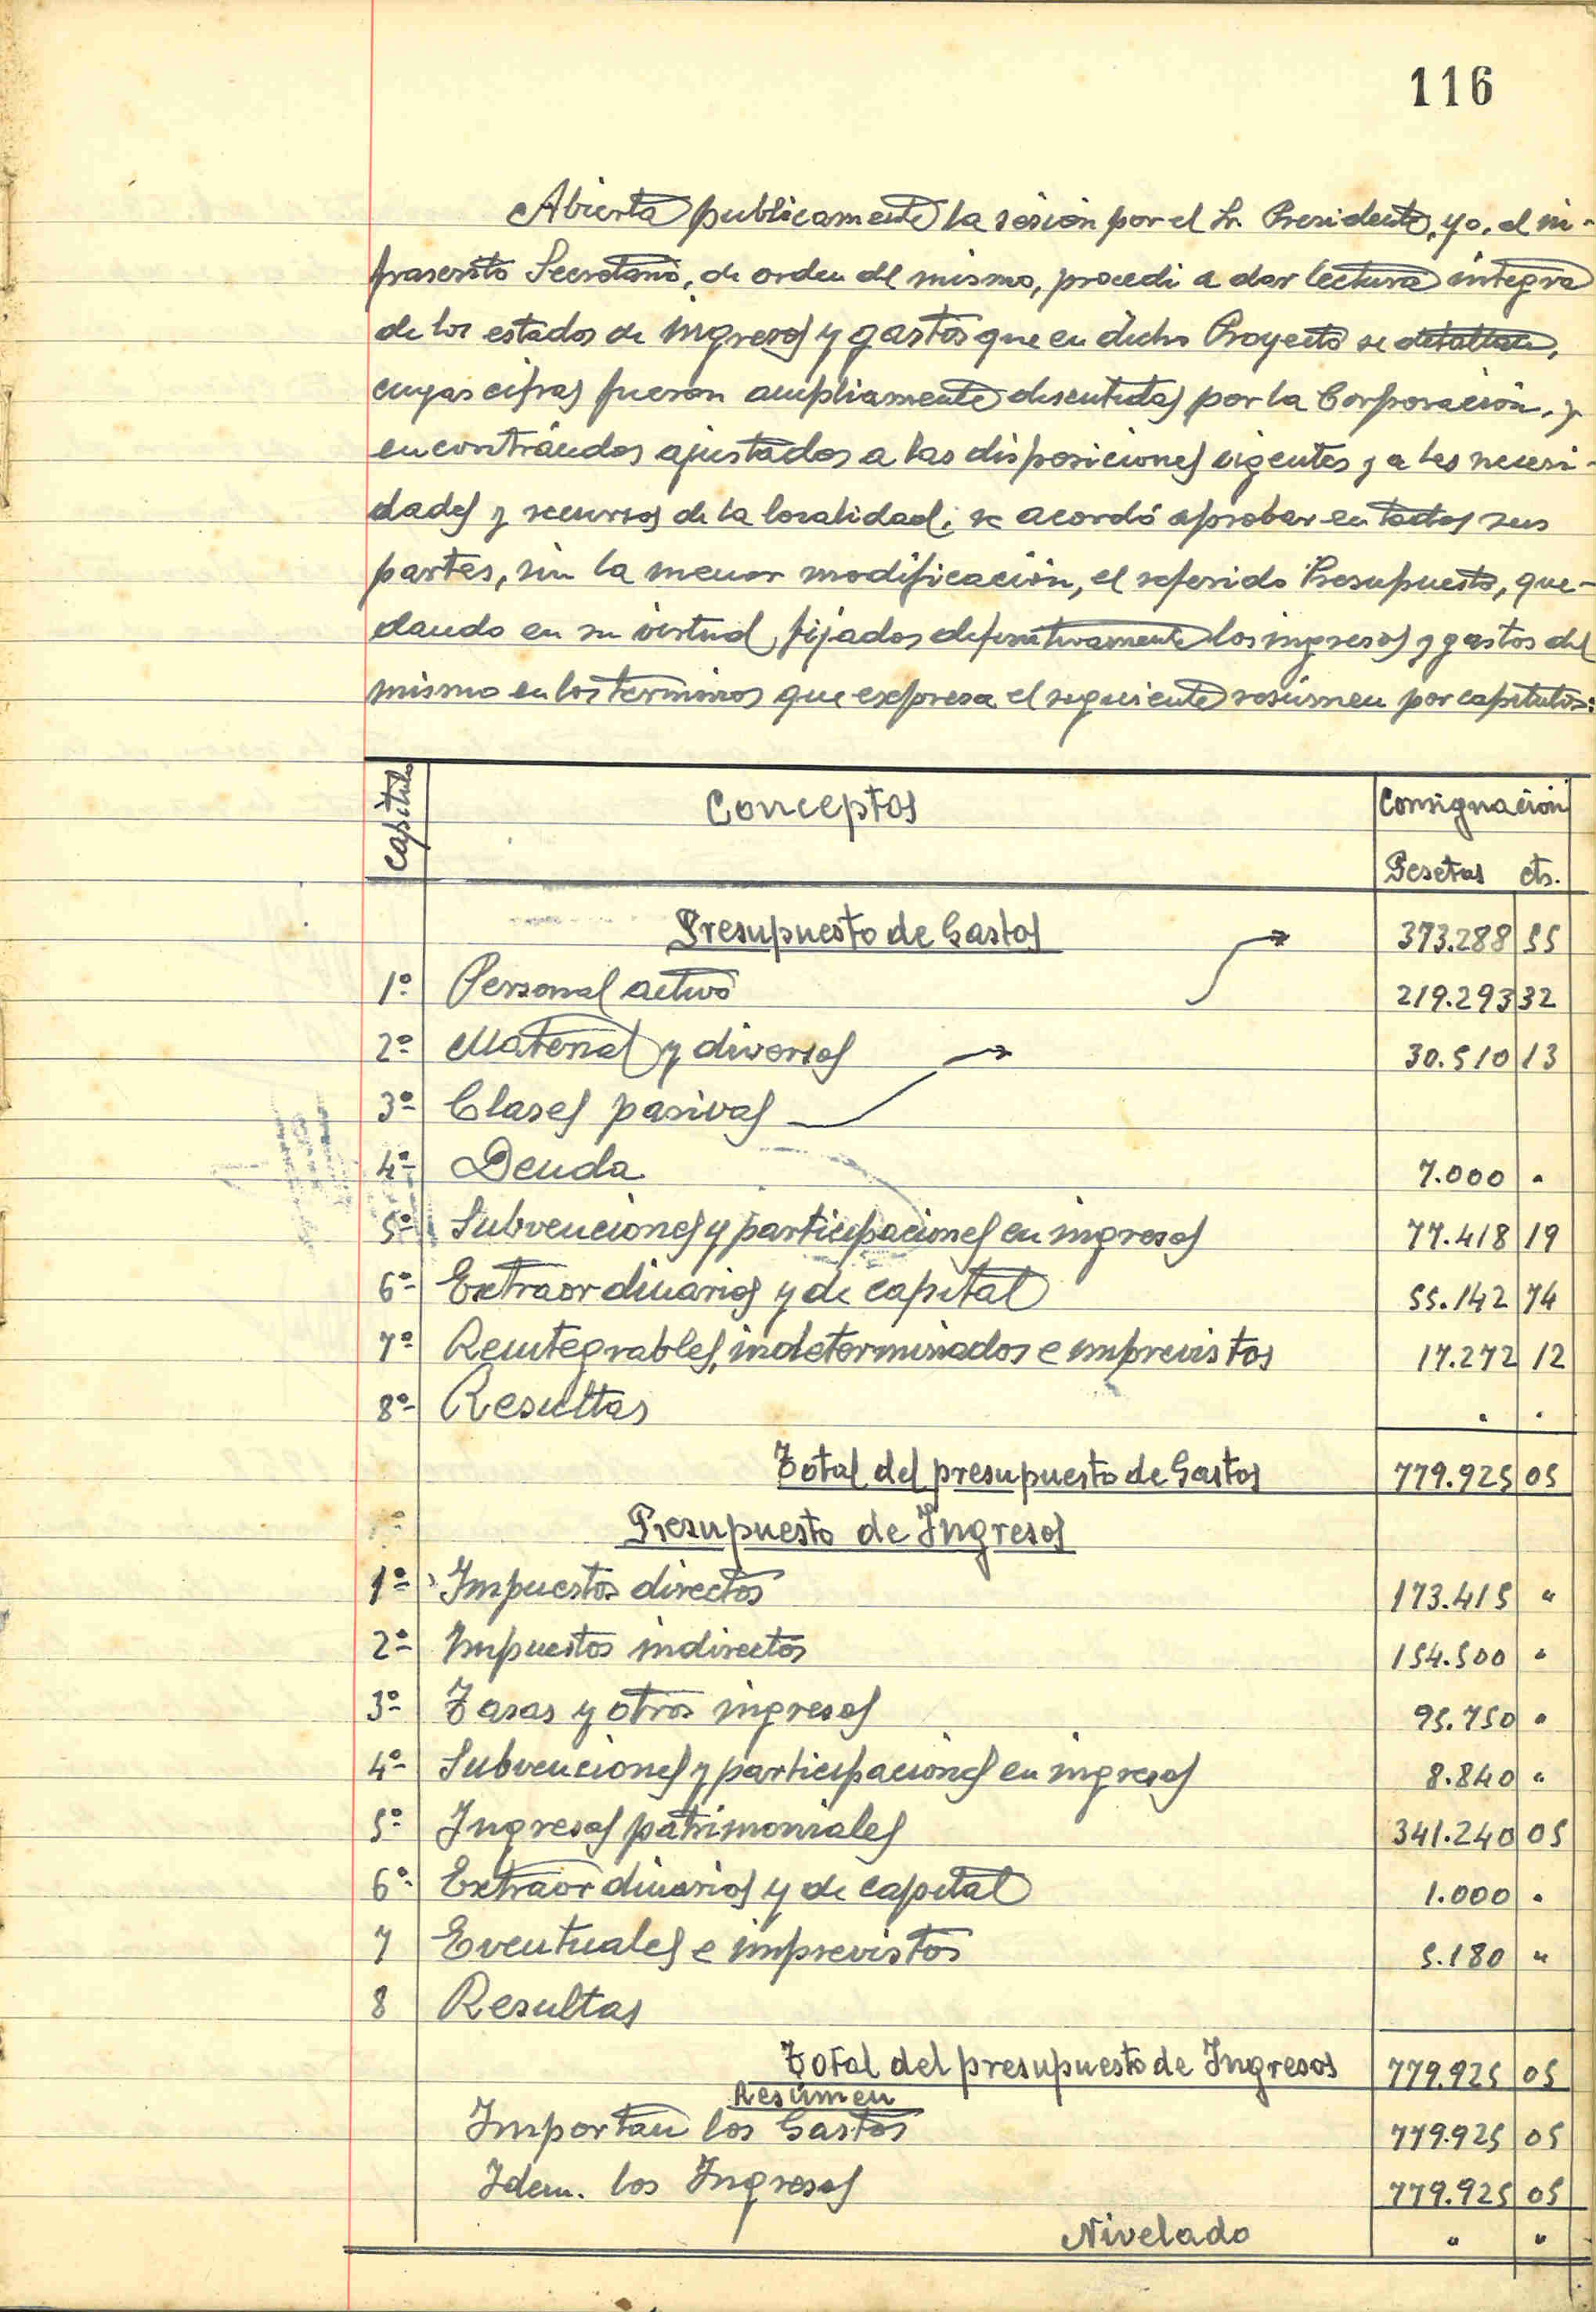 116
Abierta publicamente la sesión por el Sr. Presidente, yo, el in-
frascrito Secretario, de orden del mismo, procedi a dar lectura integra
de los estados de ingresos y gastos que en dicho Proyecto se detallan,
cuyas cifras fueron ampliamente discutidas por la Corporación, y
encontrándos ajustados a las disposiciones vigentes y a las necesi-
dades y recursos de la localidad; se acordó aprobar en todas sus
partes, sin la menor modificación, el referido Presupuesto, que-
dando en su virtud fijados definitivamente los ingresos y gastos del
mismo en los terminos que expresa el siguiente resúmen por capitulos:
Capitulo Conceptos Consignación
Pesetas cts.
Presupuesto de Gastos 373.288 55
1º Personal activo 219.293 32
2º Material y diversos 30.510 13
3º Clases pasivas
4º Deuda 7.000 "
5º Subvenciones y participaciones en ingresos 77.418 19
6º Extraordinarios y de capital 55.142 74
7º Reintegrables, indeterminados e imprevistos 17.272 12
8º Resultas . .
Total del presupuesto de Gastos 779.925 05
Presupuesto de Ingresos
1º Impuestos directos 173.415 "
2º Impuestos indirectos 154.500 "
3º Tasas y otros ingresos 95.750 "
4º Subvenciones y participaciones en ingresos 8.840 "
5º Ingresos patrimoniales 341.240 05
6º Extraordinarios y de capital 1.000 "
7 Eventuales e imprevistos 5.180 "
8 Resultas
Total del presupuesto de Ingresos 779.925 05
Resúmen
Importan los Gastos 779.925 05
Idem. los Ingresos 779.925 05
Nivelado " "